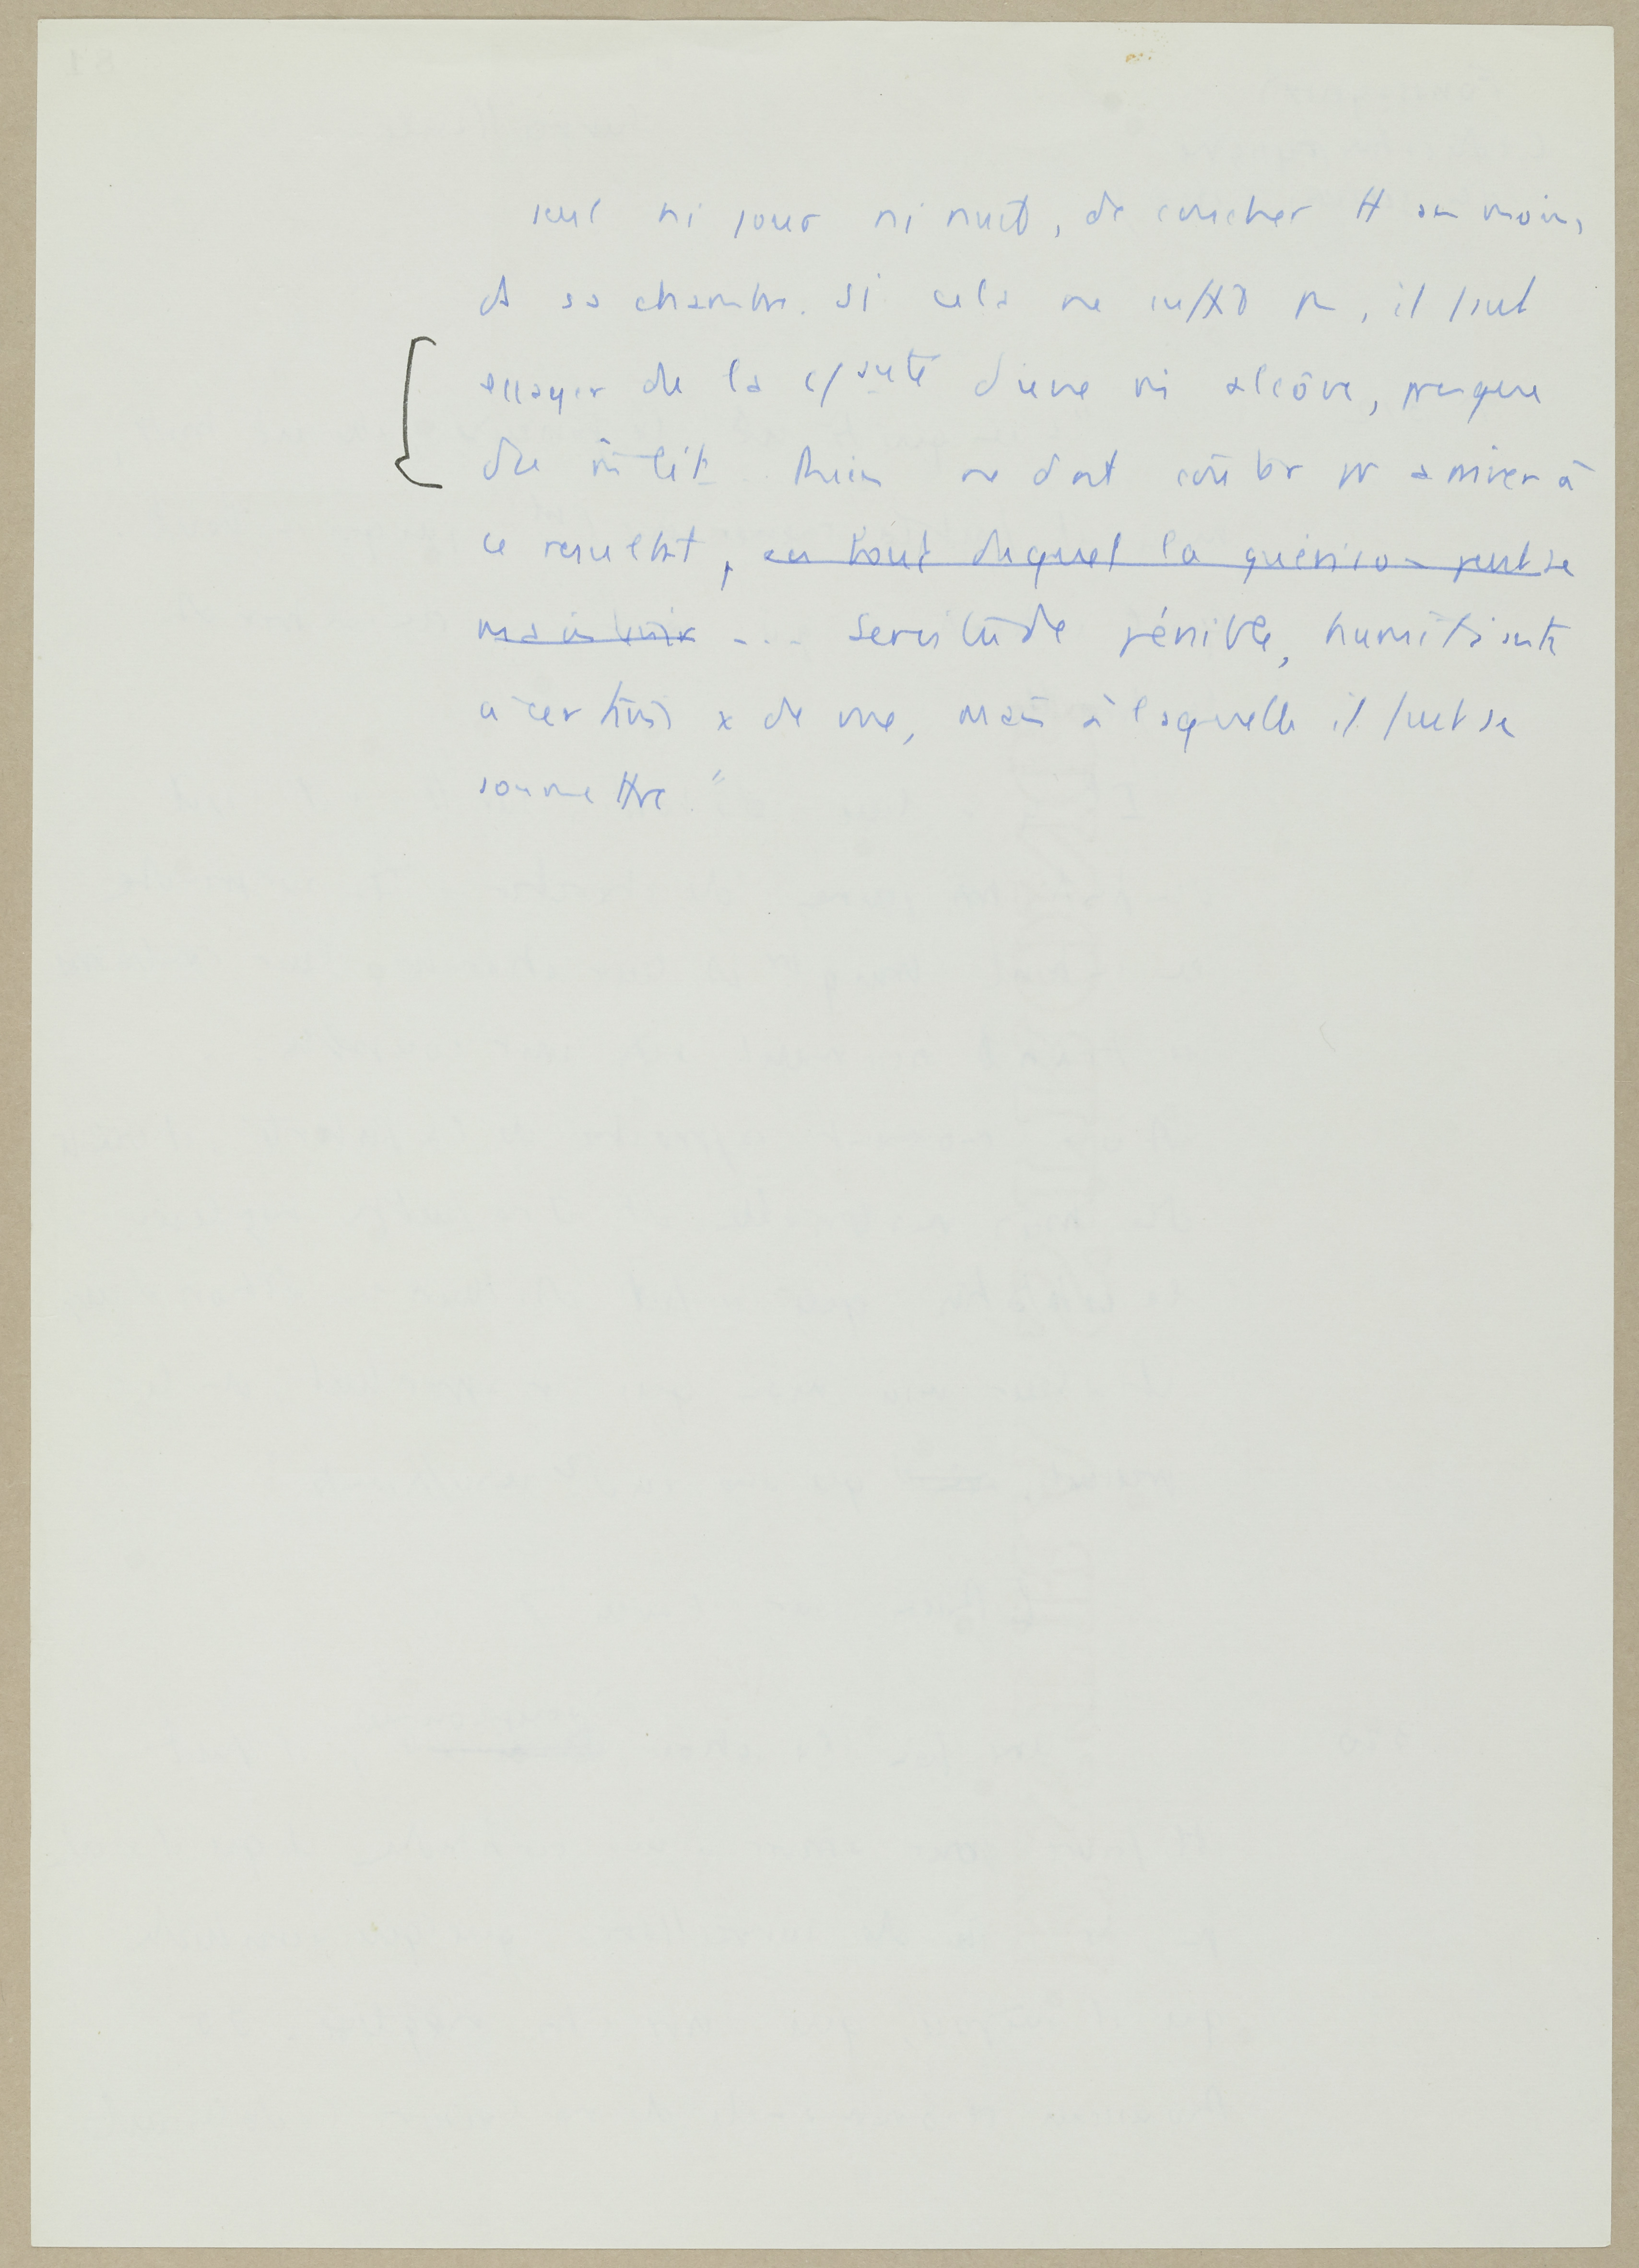 seul ni jour ni nuit, de coucher tt au moins
ds sa chambre. Si cela ne suffit pas, il faut
essayer de la c/ d'une mi alcôve, presque
du mi lit. Rien ne doit coûter pr arriver à
ce resultat, au bout duquel la guérison peut se
maintenir ... Servitude pénible, humiliante
à certains x de vue, mais à laquelle il faut se
soumettre "